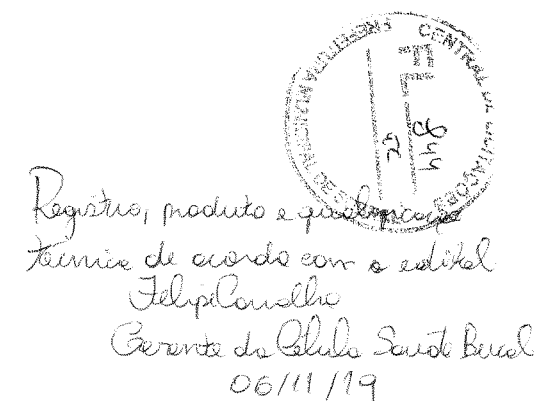 PREFEITURA MUNICIPAL DE S
CENTRAL DE LICITAÇÕES
FL
844
Registro, produto e qualificação
técnica de acordo com o edital
Felipe Carvalho
Gerente da Célula Saúde Bucal
06/11/19